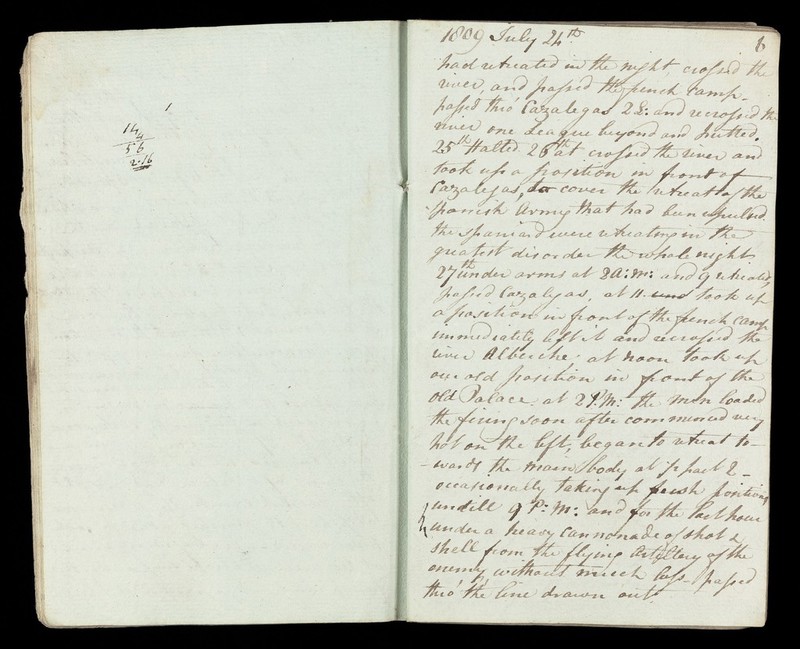 1
14
4
5.6
2.16
1809 July 24th 6
had retreated in the night, crossed the
river, and passed the french Camp-
passed thro' Cazalegas 2 L: and recrossed the
river one League beyond and hutted.
25th Halted. 26th at crossed the river and
took up a position in front of
Cazalegas, to cover the retreat of the
Spanish Army that had been repulsed.
the Spaniard were retreating in the
greatest disorder the whole night
27th under arms at 2 A:M: and 9 retreated,
passed Cazalegas, at 11 took up
a position in front of the french camp
immediately left it and recrossed the
river Alberche: at noon took up
our old position in front of the
Old Palace, at 2 P.M: the men loaded
the firing soon after commenced very
hot on the left; began to retreat to-
-wards the main body at ½ past 2-
occasionally taking up fresh positions
untill 9 P:M: and for the last hour
under a heavy Cannonade of shot &
shell from the flying Artillery of the
enemy, without much loss- passed
thro' the line drawn out